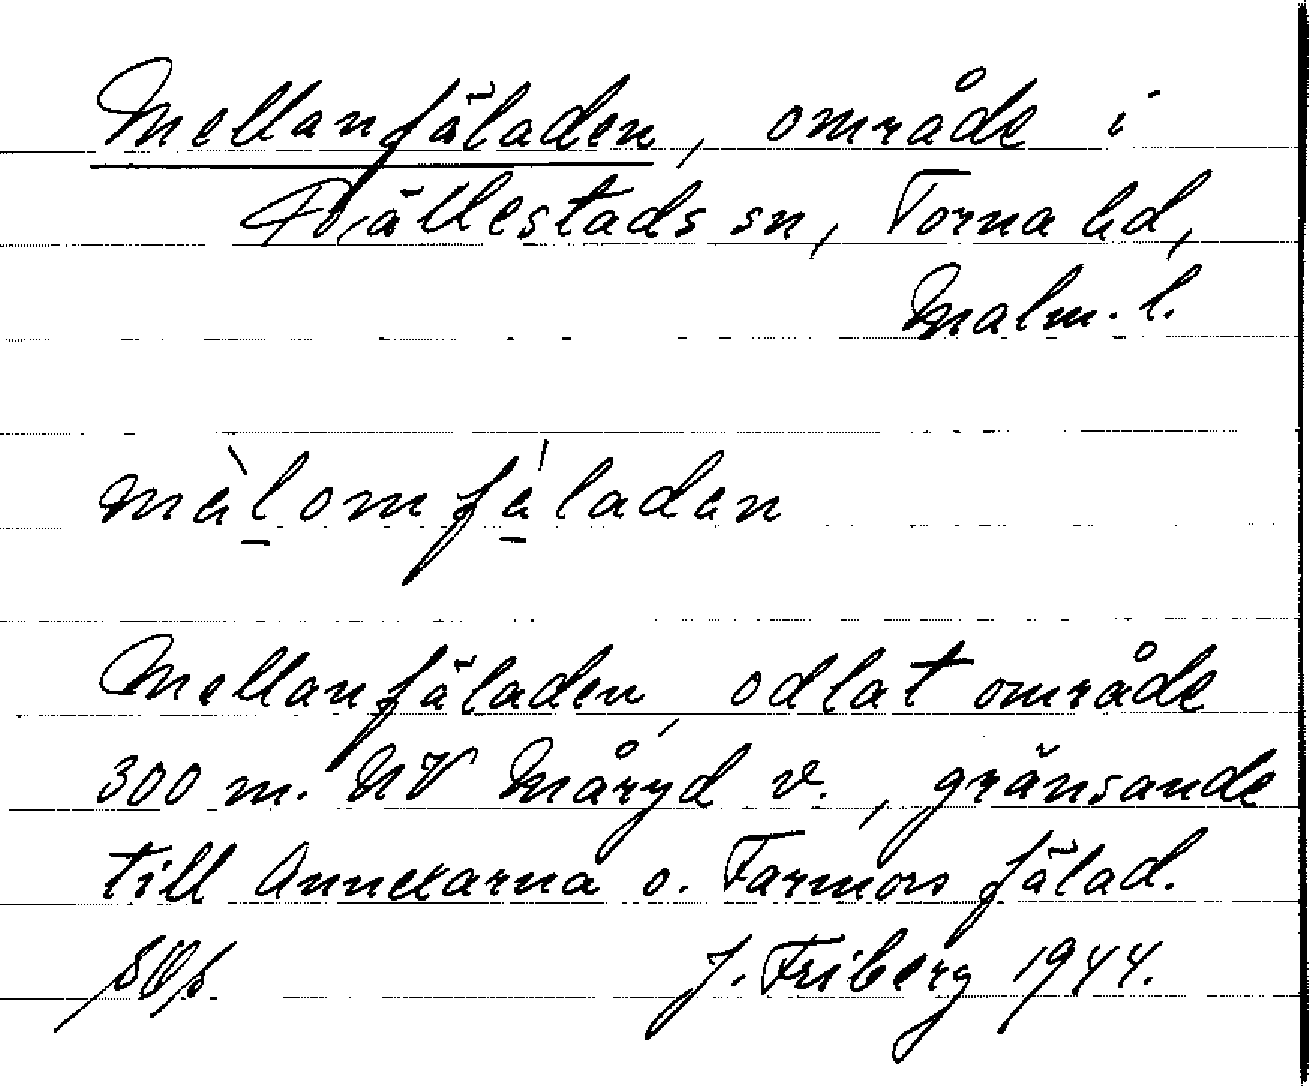 Mellanfäladen, område i
Fjällestads sn, Torna hd,
Malm. l.
mälomfäladen
Mellanfäladen, odlat område
300 m. NV Måryd v., gränsande
till Annexarna o. Farmors fälad.
J. Friberg 1944.